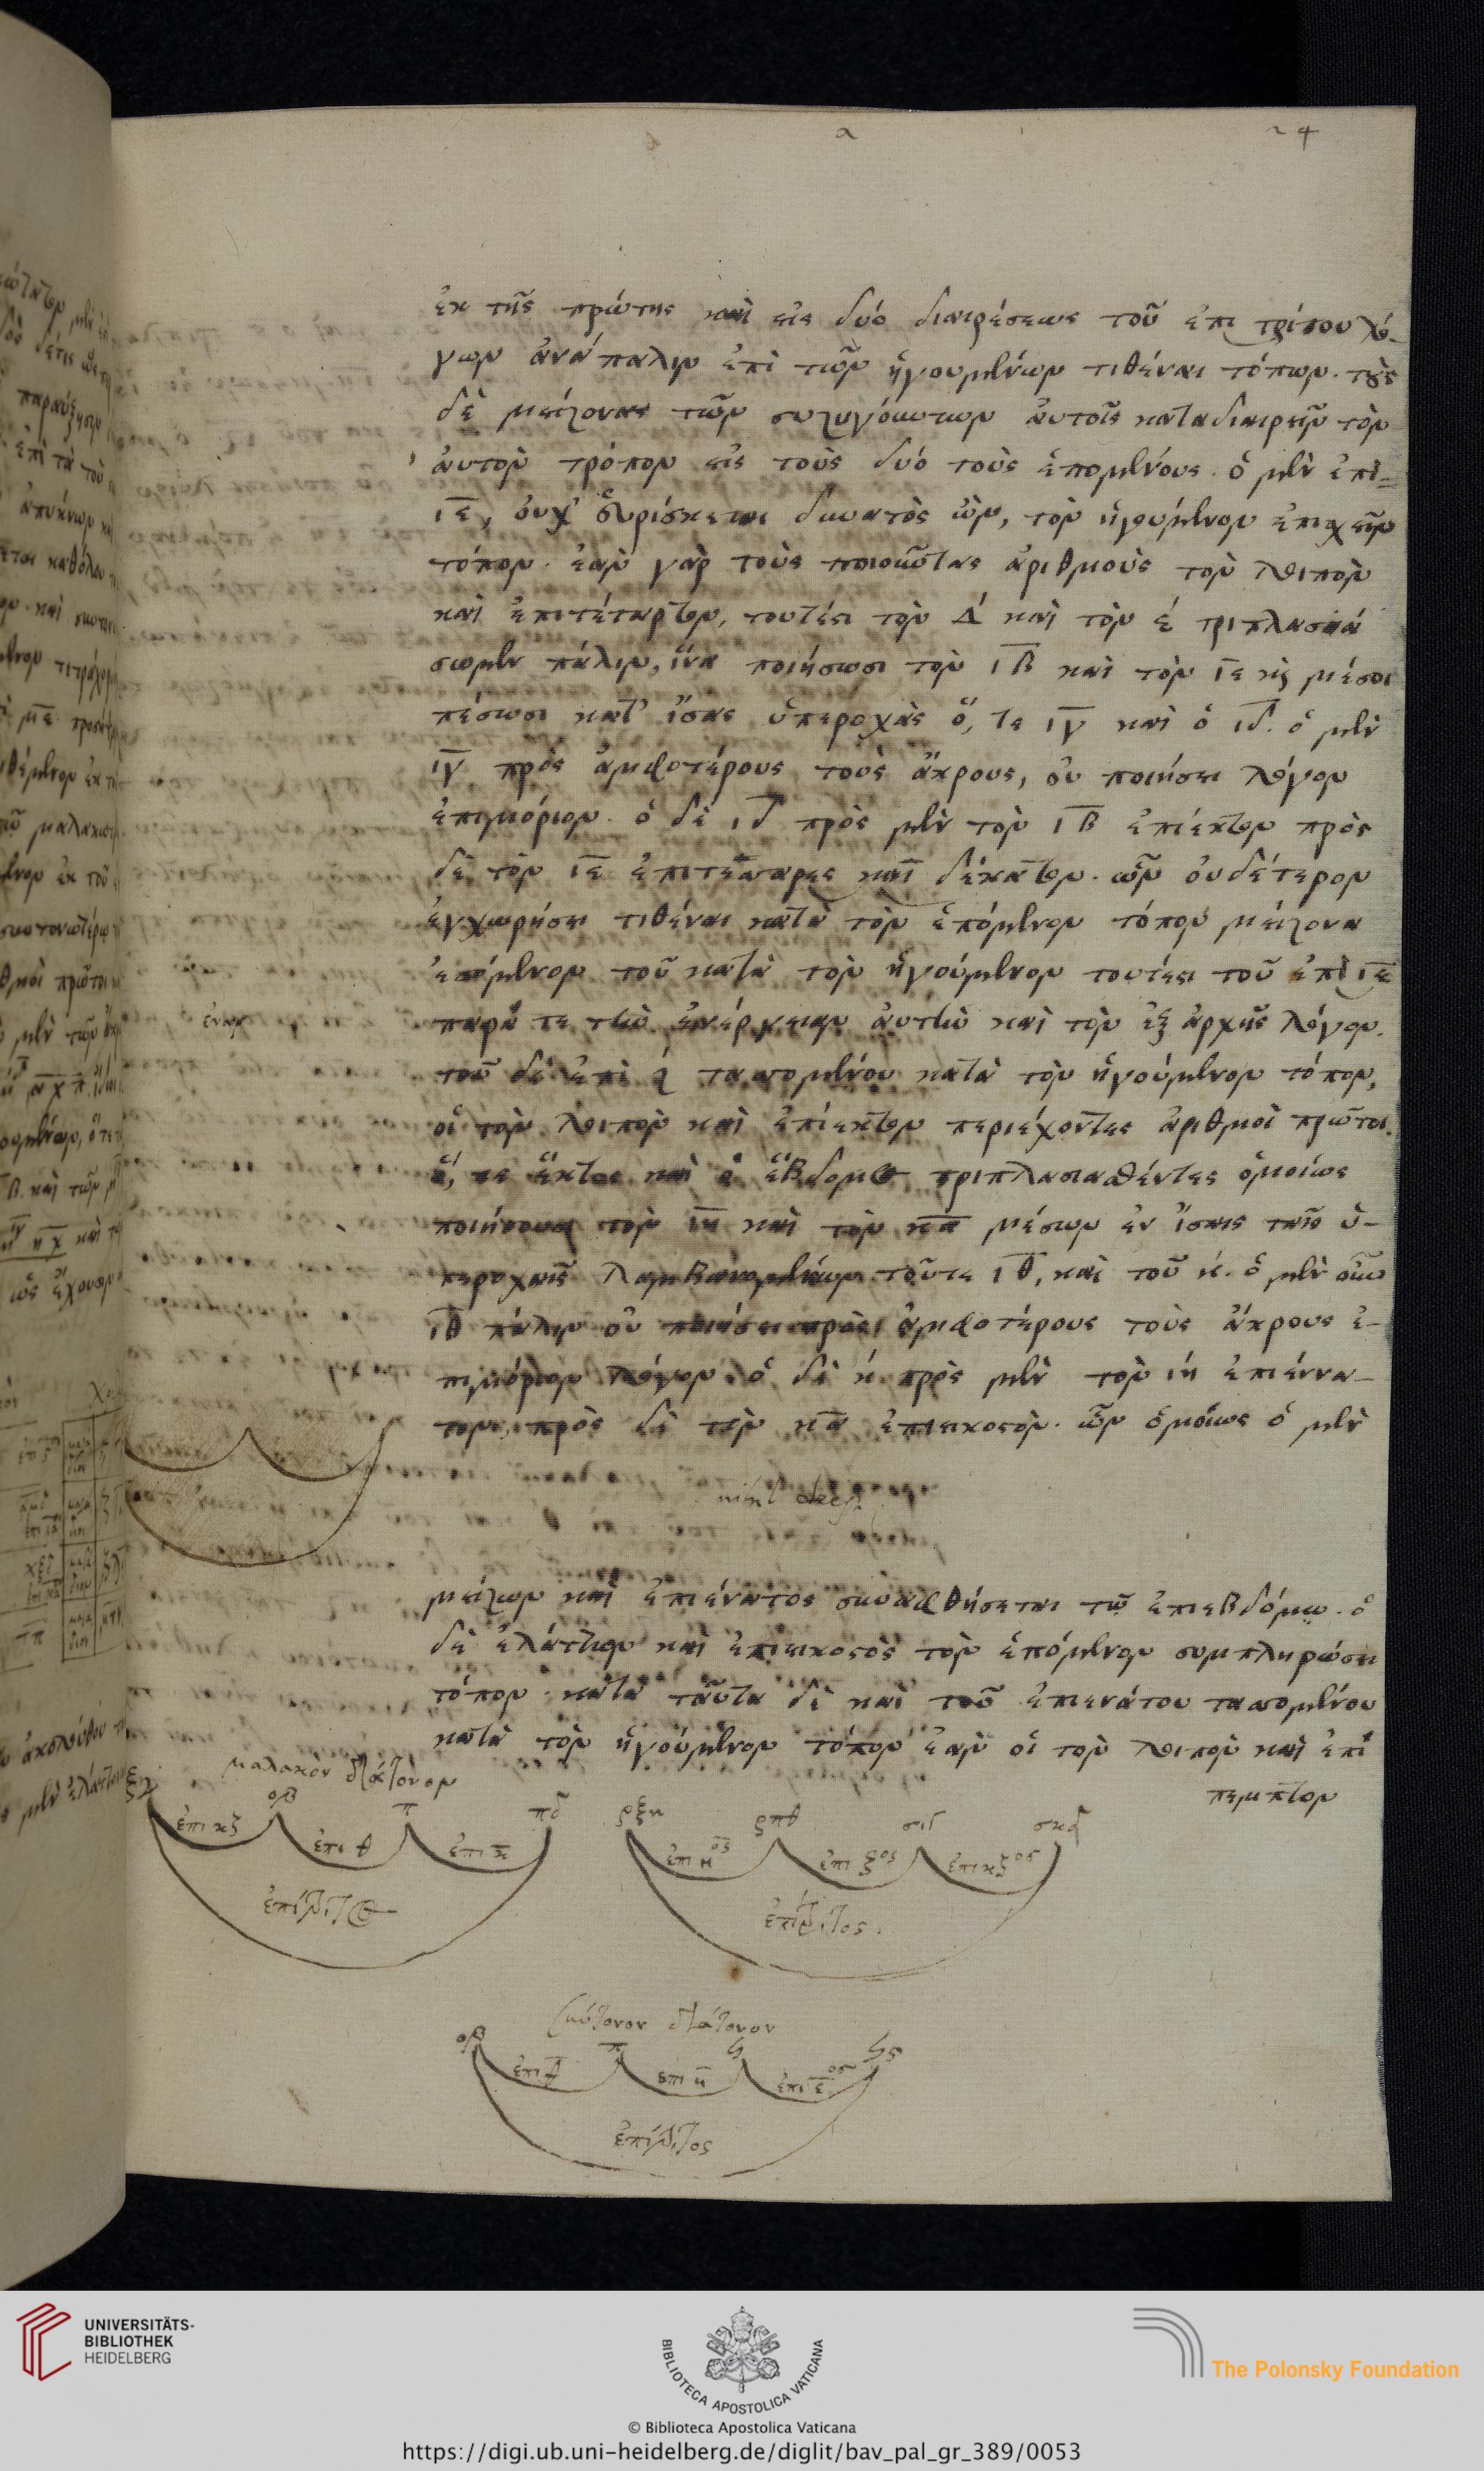 24
ἐκ τῆς πρώτης καὶ εἰς δύο διαιρέσεως τοῦ ἐπιτρίτου λό-
γων ἀνάπαλιν ἐπὶ τῶν ἡγουμένων τιθέναι τόπων. τοὺς
δὲ μείζονας τῶν συζυγόντων αὐτοῖς καταδιαιρεῖν τὸν
αὐτὸν τρόπον εἰς τοὺς δύο τοὺς ἑπομένους. ὁ μὲν ἐπι-
ιε, οὐχ εὑρίσκεται δυνατὸς ὢν, τὸν ἡγούμενον ἐπισχεῖν
τόπον. ἐὰν γὰρ τοὺς ποιοῦντας ἀριθμοὺς τὸν λοιπὸν
καὶ ἐπιτέταρτον, τουτέστι τὸν Δ καὶ τὸν ε τριπλασιά
σωμεν πάλιν, ἵνα ποιήσωσι τὸν ιβ καὶ τὸν ιε κ μέσοι
πέσωσι κατ' ἴσας ὑπεροχὰς ὅ, τε ιγ καὶ ὁ ιδ. ὁ μὲν
ιγ πρὸς ἀμφοτέρους τοὺς ἄκρους, οὐ ποιήσει λόγον
ἐπιμόριον. ὁ δὲ ιδ πρὸς μὲν τὸν ιβ ἐπίεκτον πρὸς
δὲ τὸν ιε ἐπιτεσσαρες καὶ δέκατον. ὧν οὐδέτερον
ἐγχωρήσει τιθέναι κατὰ τὸν ἑπόμενον τόπον μείζονα
ἐσόμενον τοῦ κατὰ τὸν ἡγούμενον τουτέστι τοῦ ἐπὶ ιε
ἐναρ
παρά τε τὴν ἐνέργειαν αὐτὴν καὶ τὸν ἐξ ἀρχῆς λόγον.
τοῦ δὲ ἐπὶ ζ τασσομένου κατὰ τὸν ἡγούμενον τόπον,
οἱ τὸν λοιπὸν καὶ ἐπίεκτον περιέχοντες ἀριθμοὶ πρῶτοι.
ὅ, τε ἕκτος καὶ ὁ ἕβδομος τριπλασιασθέντες ὁμοίως
ποιήσουσι τὸν ιη καὶ τὸν κα μέσων ἐν ἴσαις ταῖς ὑ-
περοχαῖς λαμβανομένων τοῦτε ιθ, καὶ τοῦ κ. ὁ μὲν οὖν
ιθ πάλιν οὐ ποιήσει πρὸς ἀμφοτέρους τοὺς ἄκρους ἐ-
πιμόριον λόγον. ὁ δὲ κ πρὸς μὲν τὸν ιη ἐπιέννα-
τον, πρὸς δὲ τὸν κα ἐπιεικοστὸν. ὧν ὁμοίως ὁ μὲν
nihil deest
μείζων καὶ ἐπιένατος συναφθήσεται τῷ ἐπιεβδόμῳ. ὁ
δὲ ἐλάττων καὶ ἐπιεικοστὸς τὸν ἑπόμενον συμπληρώσει
τόπον. κατὰ ταῦτα δὲ καὶ τοῦ ἐπιενάτου τασσομένου
κατὰ τὸν ἡγούμενον τόπον ἐὰν οἱ τὸν λοιπὸν καὶ ἐπί
πεμπτον
μαλακὸν διάτονον
ξγ οβ π πδ
ἐπι κζ ἐπι θ ἐπι κ
ἐπίτριτος
ρξη ρπθ σιϛ σκδ
ἐπι η ος ἐπι ξ ος ἐπι κζ ος
ἐπίτριτος.
σύντονον διάτονον
οβ π ϟ ϟϛ
ἐπι θ ἐπι η ἐπι ιε ος
ἐπίτριτος
UNIVERSITÄTS-
BIBLIOTHEK
HEIDELBERG
BIBLIOTECA APOSTOLICA VATICANA
The Polonsky Foundation
© Biblioteca Apostolica Vaticana
https://digi.ub.uni-heidelberg.de/diglit/bav_pal_gr_389/0053